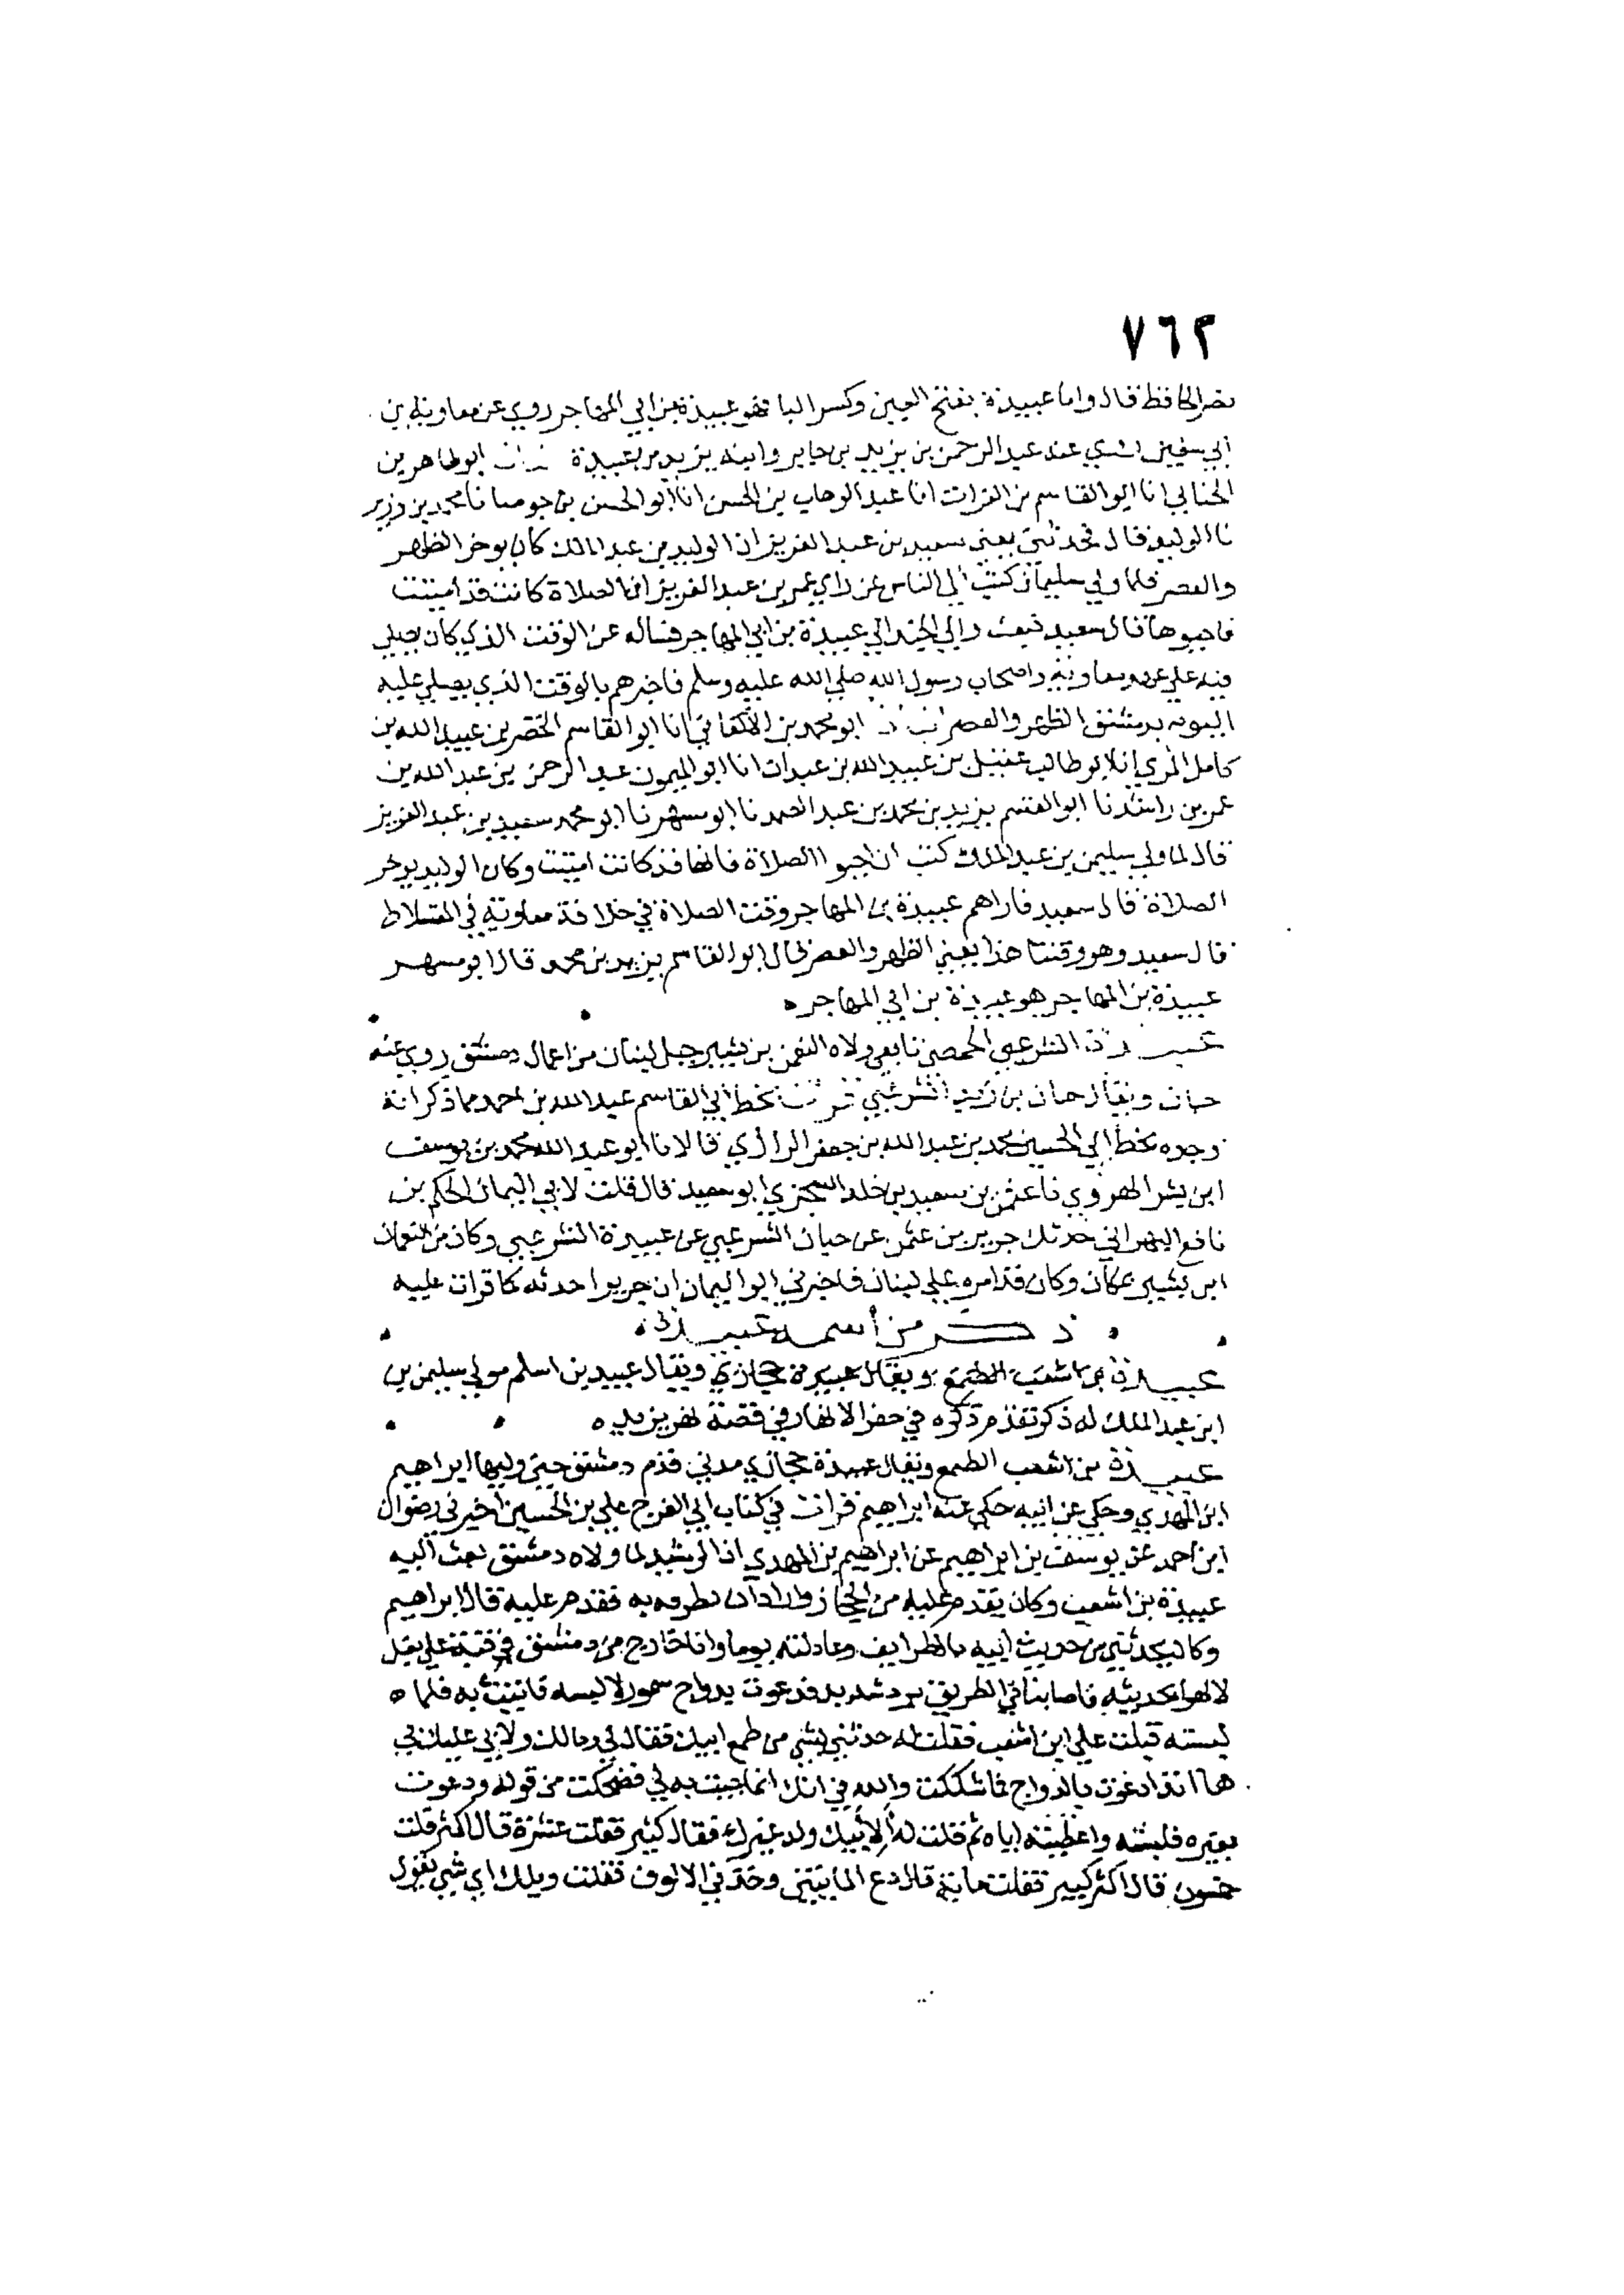 ٧٦٢
نصر الحافظ قال واما عبيدة بفتح العين وكسر البا فهو عبيدة بن ابي المهاجر روى عن معاوية بن
ابي سفين روى عنه عبد الرحمن بن يزيد بن جابر وابنه يزيد بن عبيدة ابو طاهر بن
الحنابي انا ابو القاسم بن الفرات انا عبد الوهاب بن الحسن انا ابو الحسن بن جوصا نا محمد بن وزير
نا الوليد قال فحدثني يعني سعيد بن عبد العزيز ان الوليد بن عبد الملك كان يوخر الظهر
والعصر فلما ولي سليمان كتب الى الناس عن راي عمر بن عبد العزيز ان الصلاة كانت قد اميتت
فاحيوها قال سعيد فبعث والي الجند الى عبيدة بن ابي المهاجر فساله عن الوقت الذي كان يصلي
فيه على عهد معاوية واصحاب رسول الله صلى الله عليه وسلم فاخبرهم بالوقت الذي يصلي عليه
اليوم بدمشق الظهر والعصر ابو محمد بن الاكفاني انا ابو القاسم الخضر بن عبيد الله بن
كامل المري انا ابو طالب عقيل بن عبيد الله بن عبدان انا ابو الميمون عبد الرحمن بن عبد الله بن
عمر بن راشد نا ابو القسم يزيد بن محمد بن عبد الصمد نا ابو مسهر نا ابو محمد سعيد بن عبد العزيز
قال لما ولي سليمن بن عبد الملك كتب ان احيوا الصلاة فانها قد كانت اميتت وكان الوليد يوخر
الصلاة قال سعيد فاراهم عبيدة بن المهاجر وقت الصلاة في خلافة معاوية في الفسلاط
قال سعيد وهو وقتنا هذا يعني الظهر والعصر قال ابو القاسم يزيد بن محمد قال ابو مسهر
عبيدة بن المهاجر هو عبيدة بن ابي المهاجر ه
عبيدة الشرعبي الحمصي تابعي ولاه النعمن بن بشير جبل لبنان من اعمال دمشق روى عنه
حبان ويقال حيان بن زيد الشرعبي قرات بخط ابي القاسم عبد الله بن احمد مما ذكر انه
وجده بخط ابي الحسين محمد بن عبد الله بن جعفر الرازي قال انا ابو عبد الله محمد بن يوسف
ابن بشر الهروي نا عثمن بن سعيد بن خلد السجزي ابو سعيد قال قلت لابي اليمان الحكم بن
نافع البهراني حدثك جرير بن عثمن عن حبان الشرعبي عن عبيدة الشرعبي وكان من النعمان
ابن بشير بمكان وكان قد امره على لبنان فاخبرني ابو اليمان ان جريرا حدثه كما قرات عليه
ذكر من اسمه عبيدة
عبيدة بن اشعب الطمع ويقال عبيدة حجازي ويقال عبيد بن اسلم مولى سليمن بن
ابن عبد الملك له ذكر تقدم ذكره في حفر الانهار في قصة نهر يزيد ه
عبيدة بن اشعب الطمع ويقال عبيدة حجازي مدني قدم دمشق حين وليها ابراهيم
ابن المهدي وحكى عن ابيه حكى عنه ابراهيم قرات في كتاب ابي الفرج علي بن الحسين اخبرني رضوان
ابن احمد عن يوسف بن ابراهيم عن ابراهيم بن المهدي ان الرشيد لما ولاه دمشق بعث اليه
عبيدة بن اشعب وكان يقدم عليه من الحجاز واراد ان يطرفه به فقدم عليه قال ابراهيم
وكان يحدثني من حديث ابيه بالطرايف وعادلته يوما وانا خارج من دمشق في قبة على بغل
لالهو بحديثه فاصابنا في الطريق برد شديد فدعوت بدواج سمور لالبسه فاتيت به فلما ه
لبسته قبلت على ابن اشعب فقلت له حدثني بشي من طمع ابيك فقال لي ومالك ولابي عليك بي
ها انا اذ دعوت بالدواج فما شككت والله في انك انما جيت به لي فضحكت من قوله ودعوت
بغيره فلبسته واعطيته اياه ثم قلت له الابيك ولد غيرك فقال كثير فقلت عشرة قال اكثر قلت
خمسون قال اكثر كثير فقلت ماية قال دع المايتين وخذ في الالوف فقلت ويلك اي شي تقول